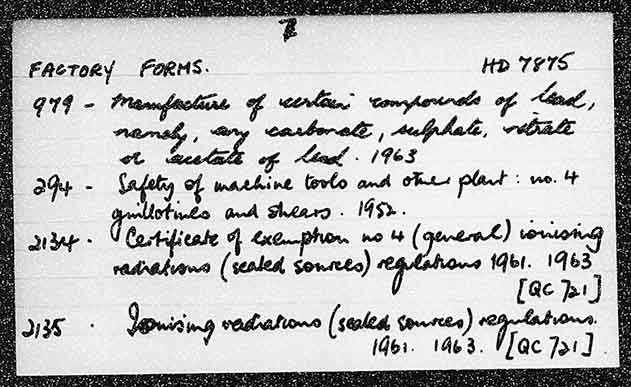 7
FACTORY FORMS. HD 7875
979 - Manufacture of certain compounds of lead,
namely, any carbonate, sulphate, nitrate
or acetate of lead. 1963
294 - Safety of machine tools and other plant: no. 4
guillotines and shears. 1952.
2134. Certificate of exemption no 4 (general) ionising
radiations (sealed sources) regulations 1961. 1963
[QC 721]
2135. Ionising radiations (sealed sources) regulations.
1961. 1963. [QC 721]